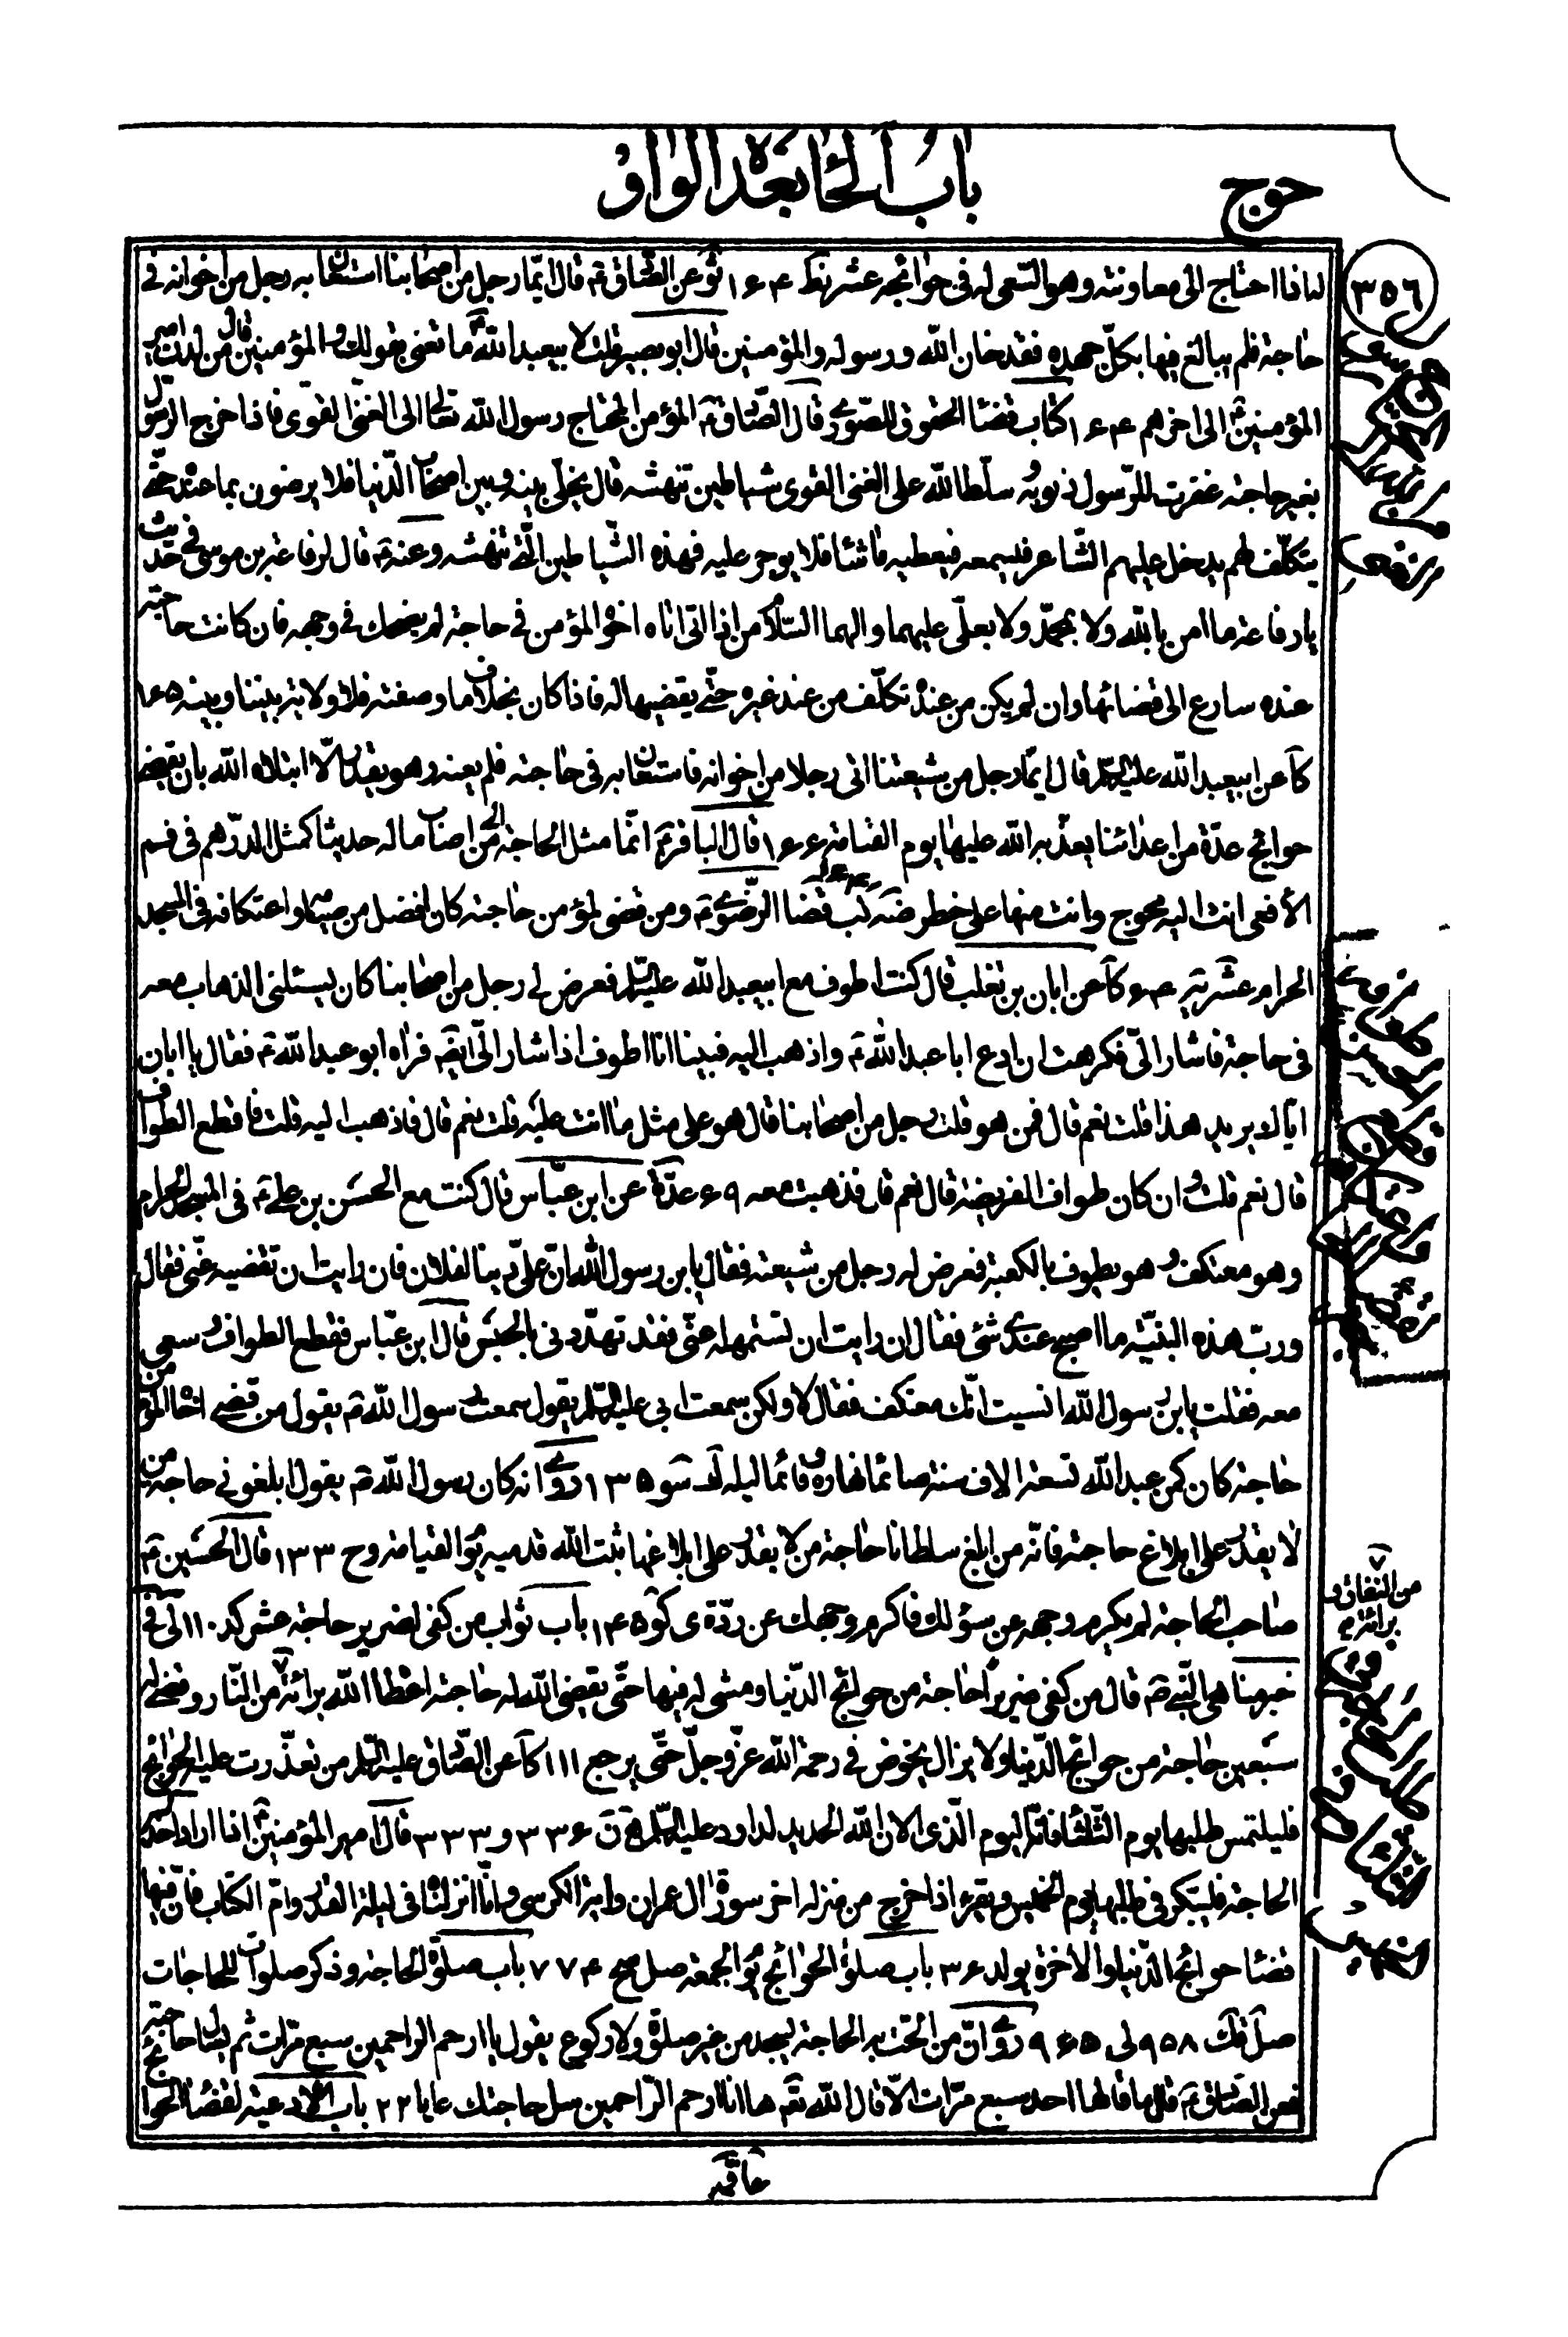 باب الحاء بعد الواو
حوج
٣٥٦
اذا احتاج الى معاونته وهو السّعى له فى حوائجه عشر نط ١۶۴ ثو عن الصّادق ع قال ايّما رجل من اصحابنا استعان به رجل من اخوانه فى
حاجة فلم يبالغ فيها بكلّ جهده فقد خان الله ورسوله والمؤمنين قال ابو بصير قلت لابيعبد الله ع ما تعنى بقولك والمؤمنين قال من لدن امير
المؤمنين ع الى اخرهم ١۶۴ كتاب قضاء الحقوق للصّورى قال الصّادق ع المؤمن المحتاج رسول الله تعالى الى الغنى القوى فاذا خرج الرسول
بغير حاجته غفرت للرّسول ذنوبه وسلّط الله على الغنى القوى شياطين تنهشه قال يخلّى بينه وبين اصحاب الدّنيا فلا يرضون بما عنده حتّى
يتكلّف لهم يدخل عليهم الشّاعر فيسمعه فيعطيه ماشاء فلا يوجر عليه فهذه الشّياطين الّتى تنهشه وعنه ع قال لرفاعة بن موسى فى حديث
يا رفاعة ما امن بالله ولا بمحمّد ولا بعلّى عليهما والهما السّلام من اذا اتاه اخوه المؤمن فى حاجة لم يضحك فى وجهه فان كانت حاجته
عنده سارع الى قضائها وان لم يكن من عنده تكلّف من عند غيره حتّى يقضيها له فاذا كان بخلاف ما وصفته فلا ولاية بيننا وبينه ١۶۵
كا عن ابيعبد الله عليه السّلام قال ايّما رجل من شيعتنا اتى رجلا من اخوانه فاستعان به فى حاجته فلم يعنه وهو يقدر الّا ابتلاه الله بان يقضى
حوائج عدّة من اعدائنا يعذّبه الله عليها يوم القيامة ١۶۶ قال الباقر ع انّما مثل الحاجة الى من اصاب ماله حديثا كمثل الدّرهم فى فم
الأفعى انت اليه محوج وانت منها على خطر ضه كب قضاء الرّضوى ع ومن قضى لمؤمن حاجته كان افضل من صيامه واعتكافه فى المسجد
الحرام عشر يز ۶۴ كا عن ابان بن تغلب قال كنت اطوف مع ابيعبد الله عليه السّلام فعرض لى رجل من اصحابنا كان يسئلنى الذهاب معه
فى حاجة فاشار الىّ فكرهت ان ادع ابا عبد الله ع واذهب اليه فبينا انا اطوف اذا شار الىّ ايضا فراه ابو عبد الله ع فقال يا ابان
ايّاك يريد هذا قلت نعم قال فمن هو قلت رجل من اصحابنا قال هو على مثل ما انت عليه قلت نعم قال فاذهب اليه قلت فاقطع الطّواف
قال نعم قلت وان كان طواف الفريضة قال نعم قال فذهبت معه ۶٩ عدّة عن ابن عبّاس قال كنت مع الحسن بن على ع فى المسجد الحرام
وهو معتكف وهو يطوف بالكعبة فعرض له رجل من شيعته فقال يابن رسول الله انّ علىّ دينا لفلان فان رايت ان تقضيه عنّى فقال
وربّ هذه البنيّة ما اصبح عندى شئ فقال ان رايت ان تستمهله عنّى فقد تهدّدنى بالحبس قال ابن عبّاس فقطع الطواف وسعى
معه فقلت يابن رسول الله انسيت انّك معتكف فقال لا ولكن سمعت ابى عليه السّلام يقول سمعت رسول الله ص يقول من قضى اخاه المؤمن
حاجة كان كمن عبد الله تسعة الاف سنة صائما نهاره وقائما ليله شو ١٣۵ روى انه كان رسول الله ص يقول ابلغونى حاجة من
لا يقدر على ابلاغ حاجته فانّه من ابلغ سلطانا حاجة من لا يقدر على ابلاغها ثبّت الله قدميه يوم القيامة روح ١٣٣ قال الحسين ع
صاحب الحاجة لم يكرم وجهه عن سؤلك فاكرم وجهك عن ردّه ى كو ١۴۵ باب ثواب من كفى لضرير حاجة عشر كد ١١٠ لى فى
خبر مناهى النّبى ص قال من كفى ضريرا حاجة من حوائج الدّنيا ومشى له فيها حتّى يقضى الله له حاجته اعطاه الله برائة من النّار وقضى له
سبعين حاجة من حوائج الدّنيا ولا يزال يخوض فى رحمة الله عزّ وجلّ حتّى يرجع ١١١ كا عن الصّادق عليه السّلام من تعذّرت عليه الحوائج
فليلتمس طلبها يوم الثّلثاء فانّه اليوم الّذى الان الله الحديد لداود عليه السّلام ٣٣۶ و ٣٣٣ قال امير المؤمنين ع اذا اراد احدكم
الحاجة فليبكر فى طلبها يوم الخميس ويقرء اذا خرج من منزله اخر سورة ال عمران واية الكرسى وانّا انزلناه فى ليلة القدر وامّ الكتاب فانّ فيها
قضاء حوائج الدّنيا والأخرة ٣۶ باب صلوة الحوائج يوم الجمعة صل صح ٧٧۴ باب صلوة الحاجة وذكر صلوات للحاجات
صل قك ٩۵٨ لى ٩۶۵ روى انّ من الحّت به الحاجة يسجد من غير صلوة ولا ركوع يقول يا ارحم الراحمين سبع مرّات ثم يسئل حاجته
فعن الصّادق ع قال ما قالها احد سبع مرّات الّا قال الله تعالى ها انا ارحم الرّاحمين سل حاجتك عا يا ٢٢ باب الادعية لقضاء الحوائج
من النّفاق و
برائة